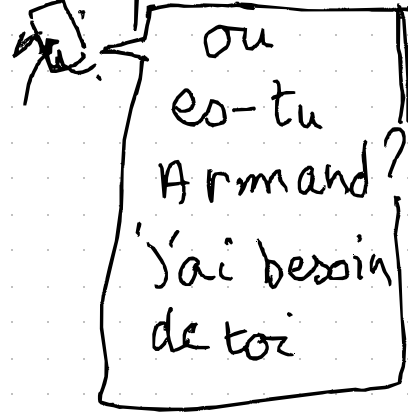 ou
es-tu
Armand?
j'ai besoin
de toi